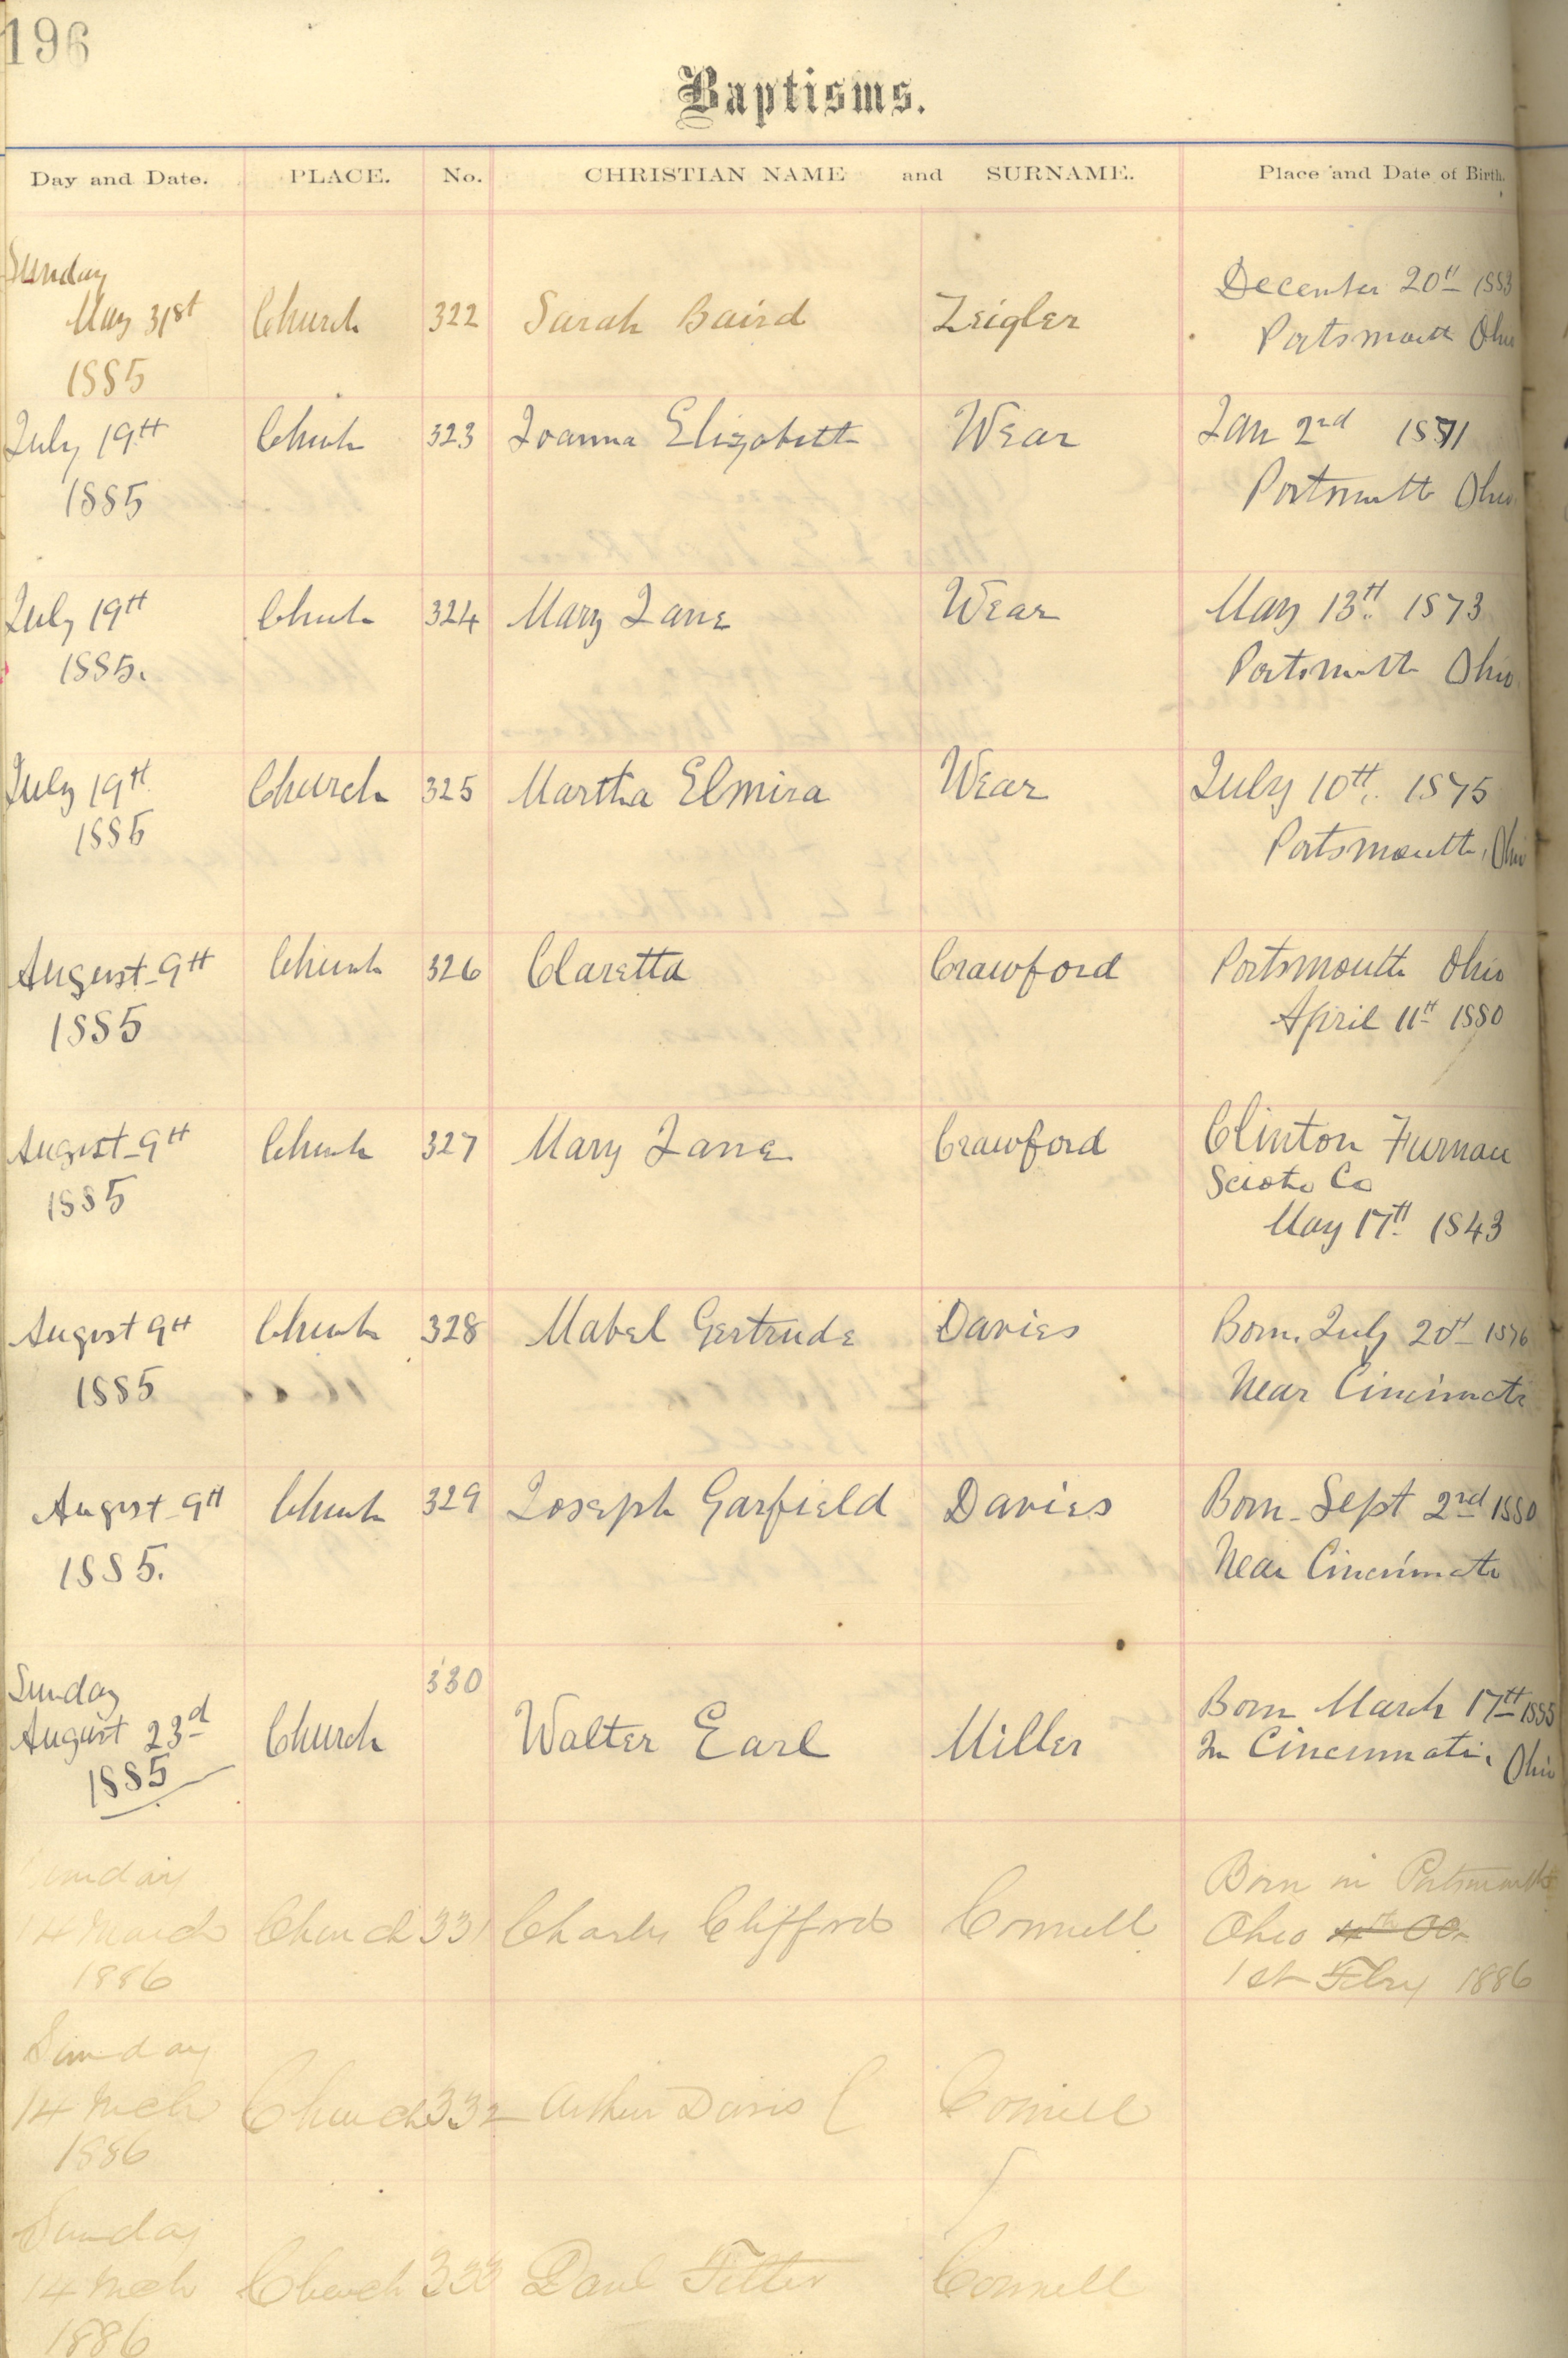 196
Baptisms.
Day and Date. PLACE. No. CHRISTIAN NAME and SURNAME. Place and Date of Birth.
Sunday
May 31st Church 322 Sarah Baird Zeigler December 20th 1883
1885 Portsmouth Ohio
July 19th Church 323 Joanna Elizabeth Wear Jan 2nd 1871
1885 Portsmouth Ohio
July 19th Church 324 Mary Jane Wear May 13th 1873
1885. Portsmouth Ohio
July 19th Church 325 Martha Elmira Wear July 10th 1875
1885 Portsmouth, Ohio
August 9th Church 326 Claretta Crawford Portsmouth Ohio
1885 April 11th 1880
August 9th Church 327 Mary Jane Crawford Clinton Furnace
1885 Scioto Co
May 17th 1843
August 9th Church 328 Mabel Gertrude Davies Born July 20th 1876
1885 Near Cincinnati
August 9th Church 329 Joseph Garfield Davies Born Sept 2nd 1880
1885. Near Cincinnati
Sunday 330
August 23d Church Walter Earl Miller Born March 17th 1885
1885 In Cincinnati, Ohio
Sunday Born in Portsmouth
14 March Church 331 Charles Clifford Connell Ohio
1886 1st Feby 1886
Sunday
14 Mch Church 332 Arthur Davis Connell
1886
Sunday
14 Mch Church 333 Paul Connell
1886